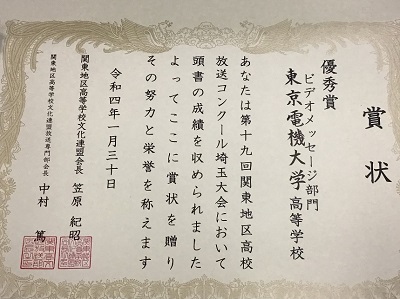 賞状
優秀賞
ビデオメッセージ部門
東京電機大学高等学校
あなたは第十九回関東地区高校
放送コンクール埼玉大会において
頭書の成績を収められました
よってここに賞状を贈り
その努力と栄誉を称えます
令和四年一月三十日
関東地区高等学校文化連盟会長 笠原紀昭
関東地区高等学校文化連盟放送専門部会長 中村篤